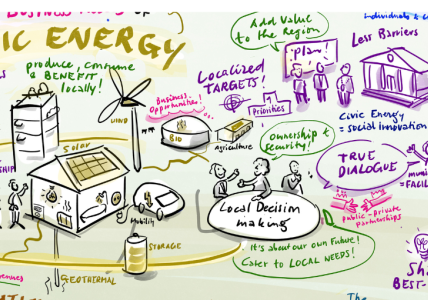 BUSINESS
OF
IC ENERGY
produce, consume
& BENEFIT
locally!
WIND
Solar
Business
Opportunities!
BIO
Agriculture
Mobility
STORAGE
GEOTHERMAL
Add Value
to the Region
LOCALIZED
TARGETS!
Priorities
plan!
Less Barriers
Individuals &
Civic Energy
= Social innovation
Ownership &
Security!
TRUE
DIALOGUE
= FACIL
Public-Private
Partnerships
Local Decision
making
It's about our own Future!
Cater to LOCAL NEEDS!
Sh
BEST-
The